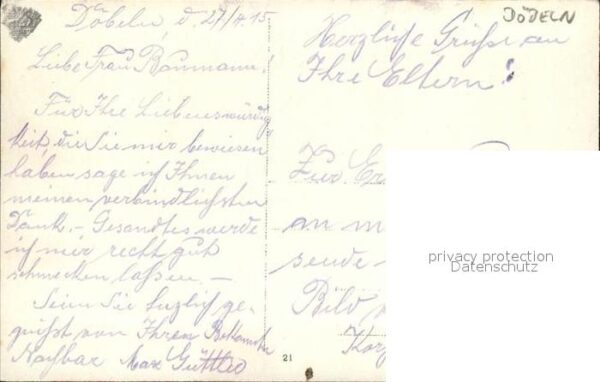 Döbeln, d. 27/4.15
Liebe Frau Baumann!
Für Ihre Liebenswürdig
keit, die Sie mir bewiesen
haben sage ich Ihnen
meinen verbindlichsten
Dank. – Gesandtes werde
ich mir recht gut
schmecken lassen. –
Seien Sie herzlich ge-
grüßt von Ihrem
Nachbar Max
Herzliche Grüße an
Ihre Eltern!
Zur
an
sende
Bild
DÖBELN
privacy protection
Datenschutz
21